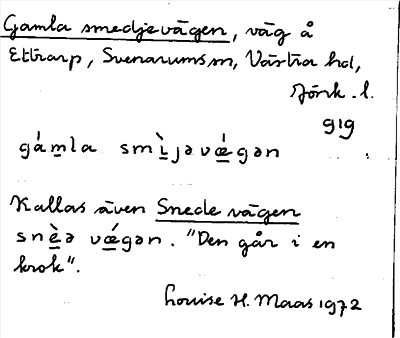 Gamla smedjevägen, väg å
Ettrarp, Svenarums sn, Västra hd,
Jönk. l.
gig
gámla smìjəvǽgən
Kallas även Snede vägen
snèə vǽgən. "Den går i en
krok".
Louise H. Maas 1972